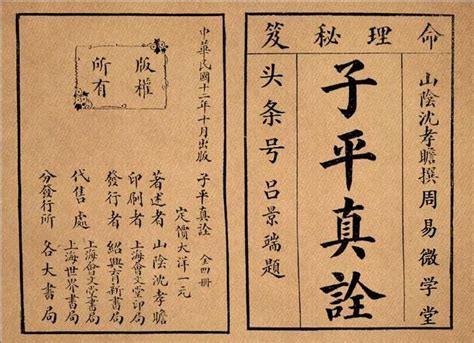 命理秘笈
山陰沈孝瞻撰周易微学堂
子平真詮
头条号吕景端題
中華民國十二年十月出版
子平真詮 全四冊
定價大洋一元
版權
所有
著述者 山陰沈孝瞻
印刷者 上海會文堂印局
發行者 紹興育新書局
代售處 上海會文堂書局
上海世界書局
分發行所 各大書局